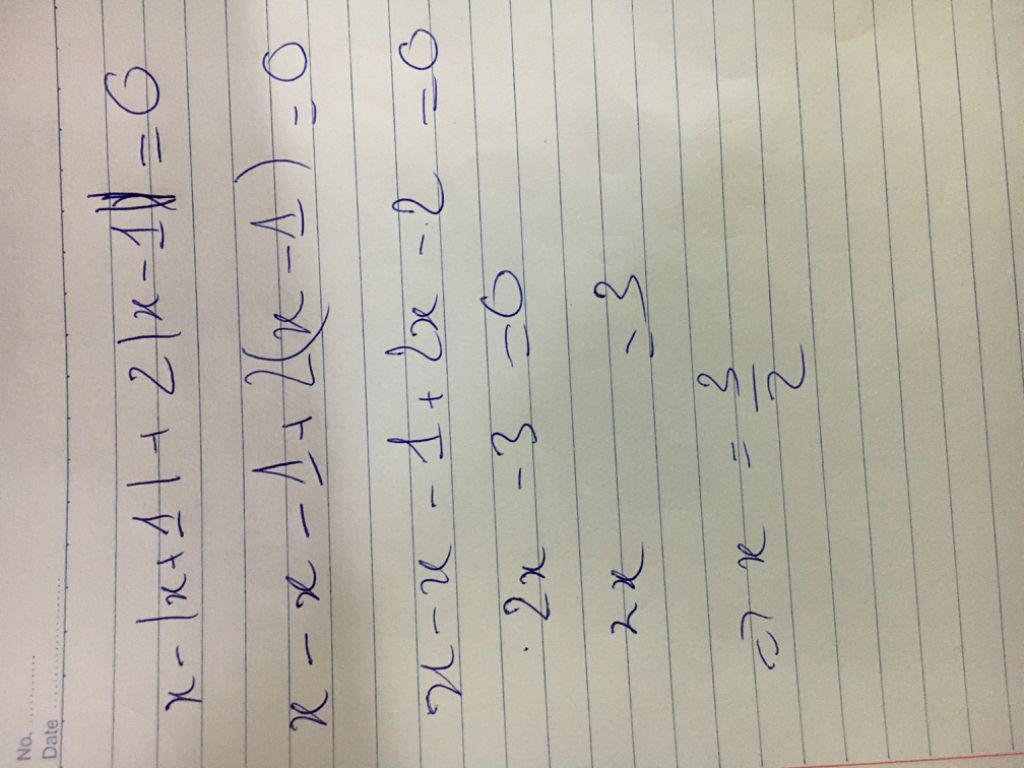 No.
Date
x - |x + 1| + 2|x - 1| = 0
x - x - 1 + 2(x - 1) = 0
x - x - 1 + 2x - 2 = 0
2x - 3 = 0
2x = 3
=> x = 3/2